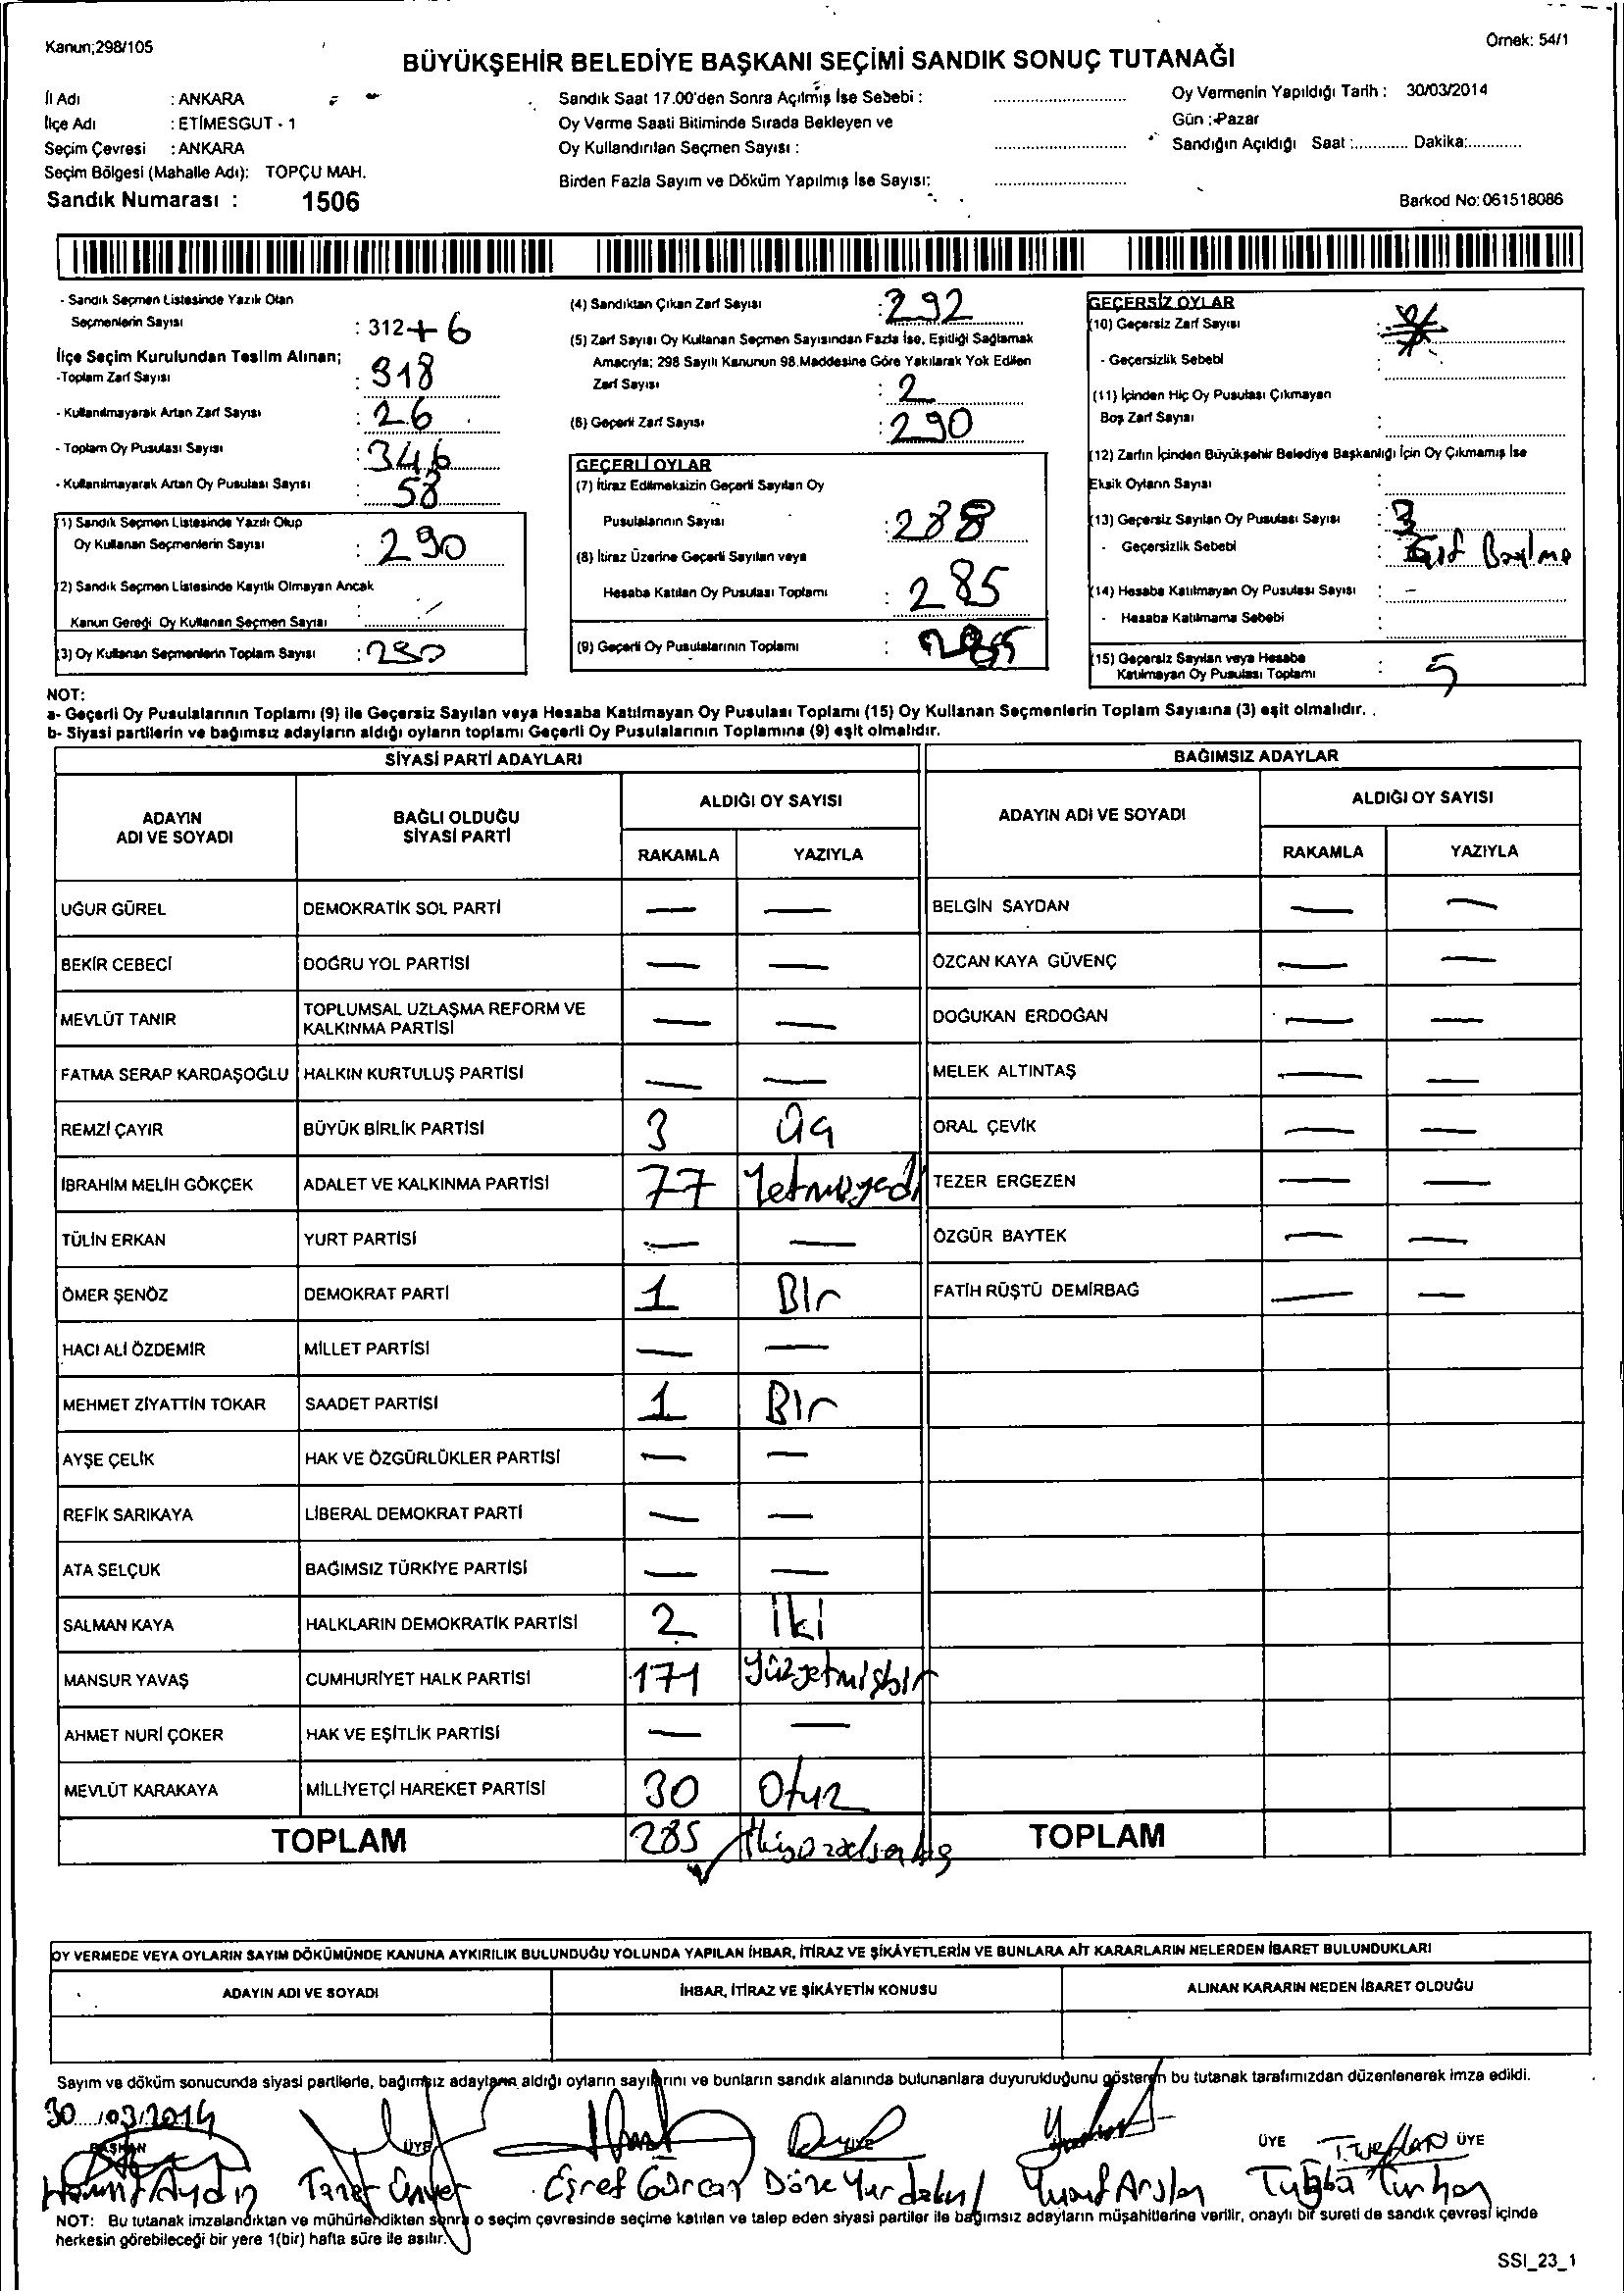 Kanun;298/105
Örnek: 54/1
BÜYÜKŞEHİR BELEDİYE BAŞKANI SEÇİMİ SANDIK SONUÇ TUTANAĞI
İl Adı : ANKARA
İlçe Adı : ETİMESGUT - 1
Seçim Çevresi : ANKARA
Seçim Bölgesi (Mahalle Adı): TOPÇU MAH.
Sandık Numarası : 1506
Sandık Saat 17.00'den Sonra Açılmış İse Sebebi :
Oy Verme Saati Bitiminde Sırada Bekleyen ve
Oy Kullandırılan Seçmen Sayısı :
Birden Fazla Sayım ve Döküm Yapılmış İse Sayısı:
Oy Vermenin Yapıldığı Tarih : 30/03/2014
Gün : Pazar
Sandığın Açıldığı Saat :............ Dakika:............
Barkod No: 061518086
- Sandık Seçmen Listesinde Yazılı Olan
Seçmenlerin Sayısı : 312+6
İlçe Seçim Kurulundan Teslim Alınan;
-Toplam Zarf Sayısı : 318
- Kullanılmayarak Artan Zarf Sayısı : 26
- Toplam Oy Pusulası Sayısı : 346
- Kullanılmayarak Artan Oy Pusulası Sayısı : 58
(1) Sandık Seçmen Listesinde Yazılı Olup
Oy Kullanan Seçmenlerin Sayısı : 290
(2) Sandık Seçmen Listesinde Kayıtlı Olmayan Ancak
Kanun Gereği Oy Kullanan Seçmen Sayısı :
(3) Oy Kullanan Seçmenlerin Toplam Sayısı : 290
(4) Sandıktan Çıkan Zarf Sayısı : 292
(5) Zarf Sayısı Oy Kullanan Seçmen Sayısından Fazla İse, Eşitliği Sağlamak
Amacıyla; 298 Sayılı Kanunun 98.Maddesine Göre Yakılarak Yok Edilen
Zarf Sayısı : 2
(6) Geçerli Zarf Sayısı : 290
GEÇERLİ OYLAR
(7) İtiraz Edilmeksizin Geçerli Sayılan Oy
Pusulalarının Sayısı : 288
(8) İtiraz Üzerine Geçerli Sayılan veya
Hesaba Katılan Oy Pusulası Toplamı : 285
(9) Geçerli Oy Pusulalarının Toplamı : 285
GEÇERSİZ OYLAR
(10) Geçersiz Zarf Sayısı :
- Geçersizlik Sebebi :
(11) İçinden Hiç Oy Pusulası Çıkmayan
Boş Zarf Sayısı :
(12) Zarfın İçinden Büyükşehir Belediye Başkanlığı İçin Oy Çıkmamış İse
Eksik Oyların Sayısı :
(13) Geçersiz Sayılan Oy Pusulası Sayısı : 3
- Geçersizlik Sebebi :
(14) Hesaba Katılmayan Oy Pusulası Sayısı : -
- Hesaba Katılmama Sebebi :
(15) Geçersiz Sayılan veya Hesaba
Katılmayan Oy Pusulası Toplamı : 5
NOT:
a- Geçerli Oy Pusulalarının Toplamı (9) ile Geçersiz Sayılan veya Hesaba Katılmayan Oy Pusulası Toplamı (15) Oy Kullanan Seçmenlerin Toplam Sayısına (3) eşit olmalıdır.
b- Siyasi partilerin ve bağımsız adayların aldığı oyların toplamı Geçerli Oy Pusulalarının Toplamına (9) eşit olmalıdır.
SİYASİ PARTİ ADAYLARI
BAĞIMSIZ ADAYLAR
ADAYIN ADI VE SOYADI
BAĞLI OLDUĞU SİYASİ PARTİ
ALDIĞI OY SAYISI
RAKAMLA YAZIYLA
ADAYIN ADI VE SOYADI
ALDIĞI OY SAYISI
RAKAMLA YAZIYLA
UĞUR GÜREL DEMOKRATİK SOL PARTİ — — BELGİN SAYDAN — —
BEKİR CEBECİ DOĞRU YOL PARTİSİ — — ÖZCAN KAYA GÜVENÇ — —
MEVLÜT TANIR TOPLUMSAL UZLAŞMA REFORM VE KALKINMA PARTİSİ — — DOĞUKAN ERDOĞAN — —
FATMA SERAP KARDAŞOĞLU HALKIN KURTULUŞ PARTİSİ — — MELEK ALTINTAŞ — —
REMZİ ÇAYIR BÜYÜK BİRLİK PARTİSİ 3 Üç ORAL ÇEVİK — —
İBRAHİM MELİH GÖKÇEK ADALET VE KALKINMA PARTİSİ 77 Yetmişyedi TEZER ERGEZEN — —
TÜLİN ERKAN YURT PARTİSİ — — ÖZGÜR BAYTEK — —
ÖMER ŞENÖZ DEMOKRAT PARTİ 1 Bir FATİH RÜŞTÜ DEMİRBAĞ — —
HACI ALİ ÖZDEMİR MİLLET PARTİSİ — —
MEHMET ZİYATTİN TOKAR SAADET PARTİSİ 1 Bir
AYŞE ÇELİK HAK VE ÖZGÜRLÜKLER PARTİSİ — —
REFİK SARIKAYA LİBERAL DEMOKRAT PARTİ — —
ATA SELÇUK BAĞIMSIZ TÜRKİYE PARTİSİ — —
SALMAN KAYA HALKLARIN DEMOKRATİK PARTİSİ 2 İki
MANSUR YAVAŞ CUMHURİYET HALK PARTİSİ 171 Yüzyetmişbir
AHMET NURİ ÇOKER HAK VE EŞİTLİK PARTİSİ — —
MEVLÜT KARAKAYA MİLLİYETÇİ HAREKET PARTİSİ 30 Otuz
TOPLAM 285 TOPLAM
OY VERMEDE VEYA OYLARIN SAYIM DÖKÜMÜNDE KANUNA AYKIRILIK BULUNDUĞU YOLUNDA YAPILAN İHBAR, İTİRAZ VE ŞİKÂYETLERİN VE BUNLARA AİT KARARLARIN NELERDEN İBARET BULUNDUKLARI
ADAYIN ADI VE SOYADI İHBAR, İTİRAZ VE ŞİKÂYETİN KONUSU ALINAN KARARIN NEDEN İBARET OLDUĞU
Sayım ve döküm sonucunda siyasi partilerle, bağımsız adayların aldığı oyların sayılarını ve bunların sandık alanında bulunanlara duyurulduğunu gösteren bu tutanak tarafımızdan düzenlenerek imza edildi.
30/03/2014
BAŞKAN ÜYE ÜYE ÜYE ÜYE
Aydın Eşref Gürcan Döne Yurdakul Yusuf Arslan Tuğba Turhan
NOT: Bu tutanak imzalandıktan ve mühürlendikten sonra o seçim çevresinde seçime katılan ve talep eden siyasi partiler ile bağımsız adayların müşahitlerine verilir, onaylı bir sureti de sandık çevresi içinde
herkesin görebileceği bir yere 1(bir) hafta süre ile asılır.
SSI_23_1